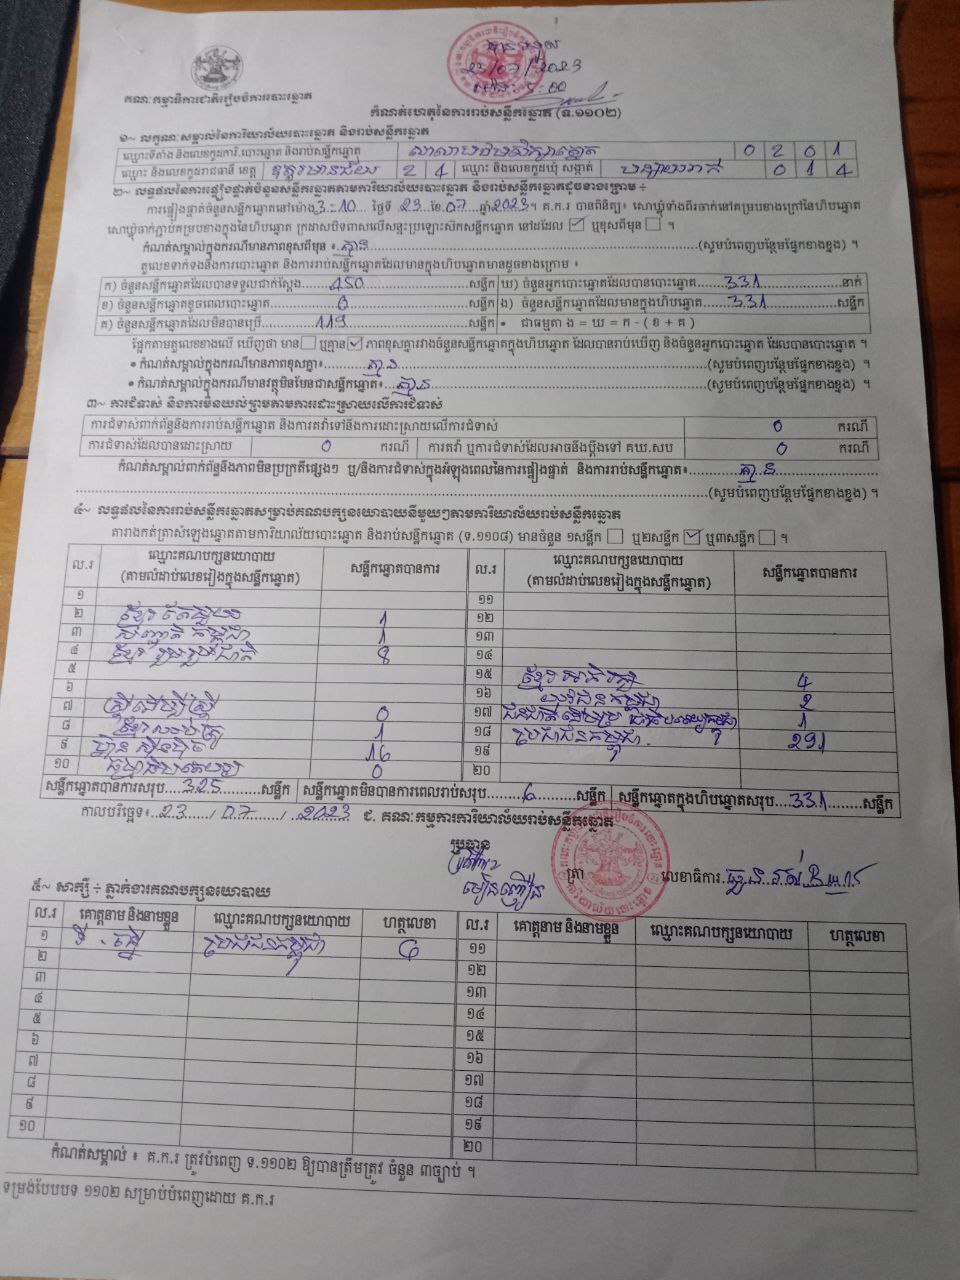 បានទទួល
23/07/2023
ម៉ោង: 5:00
គណៈកម្មាធិការជាតិរៀបចំការបោះឆ្នោត
កំណត់ហេតុនៃការរាប់សន្លឹកឆ្នោត (ទ.១១០២)
១~ លក្ខណៈសម្គាល់នៃការិយាល័យបោះឆ្នោត និងរាប់សន្លឹកឆ្នោត
ឈ្មោះទីតាំង និងលេខកូដការិ.បោះឆ្នោត និងរាប់សន្លឹកឆ្នោត 0 2 0 1
ឈ្មោះ និងលេខកូដរាជធានី ខេត្ត ឧត្តរមានជ័យ 2 4 ឈ្មោះ និងលេខកូដឃុំ សង្កាត់ 0 1 4
២~ លទ្ធផលនៃការផ្ទៀងផ្ទាត់ចំនួនសន្លឹកឆ្នោតតាមការិយាល័យបោះឆ្នោត និងរាប់សន្លឹកឆ្នោតដូចខាងក្រោម ÷
ការផ្ទៀងផ្ទាត់ចំនួនសន្លឹកឆ្នោតនៅម៉ោង 3:10 ថ្ងៃទី 23 ខែ 07 ឆ្នាំ 2023។ គ.ក.រ បានពិនិត្យ៖ សោឃ្លុំទាំងពីរចាក់នៅគម្របខាងក្រៅនៃហិបឆ្នោត
សោឃ្លុំចាក់ភ្ជាប់គម្របខាងក្នុងនៃហិបឆ្នោត ក្រដាសបិទពាសលើសន្ទះប្រឡោះសៀកសន្លឹកឆ្នោត នៅដដែល ☑ ឬខុសពីមុន ☐ ។
កំណត់សម្គាល់ក្នុងករណីមានភាពខុសពីមុន ៖ គ្មាន (សូមបំពេញបន្ថែមផ្នែកខាងខ្នង) ។
តួលេខទាក់ទងនឹងការបោះឆ្នោត និងការរាប់សន្លឹកឆ្នោតដែលមានក្នុងហិបឆ្នោតមានដូចខាងក្រោម ៖
ក) ចំនួនសន្លឹកឆ្នោតដែលបានទទួលជាក់ស្តែង 450 សន្លឹក ឃ) ចំនួនអ្នកបោះឆ្នោតដែលបានបោះឆ្នោត 331 នាក់
ខ) ចំនួនសន្លឹកឆ្នោតខូចពេលបោះឆ្នោត 0 សន្លឹក ង) ចំនួនសន្លឹកឆ្នោតដែលមានក្នុងហិបឆ្នោត 331 សន្លឹក
គ) ចំនួនសន្លឹកឆ្នោតដែលមិនបានប្រើ 119 សន្លឹក • ជាធម្មតា ង = ឃ = ក - ( ខ + គ )
ផ្អែកតាមតួលេខខាងលើ ឃើញថា មាន ☐ ឬគ្មាន ☑ ភាពខុសគ្នារវាងចំនួនសន្លឹកឆ្នោតក្នុងហិបឆ្នោត ដែលបានរាប់ឃើញ និងចំនួនអ្នកបោះឆ្នោត ដែលបានបោះឆ្នោត ។
• កំណត់សម្គាល់ក្នុងករណីមានភាពខុសគ្នា៖ គ្មាន (សូមបំពេញបន្ថែមផ្នែកខាងខ្នង) ។
• កំណត់សម្គាល់ក្នុងករណីមានវត្ថុមិនមែនជាសន្លឹកឆ្នោត៖ គ្មាន (សូមបំពេញបន្ថែមផ្នែកខាងខ្នង) ។
៣~ ការជំទាស់ និងការមិនយល់ព្រមតាមការដោះស្រាយលើការជំទាស់
ការជំទាស់ពាក់ព័ន្ធនឹងការរាប់សន្លឹកឆ្នោត និងការតវ៉ាទៅនឹងការដោះស្រាយលើការជំទាស់ 0 ករណី
ការជំទាស់ដែលបានដោះស្រាយ 0 ករណី ការតវ៉ា ឬការជំទាស់ដែលអាចនឹងប្តឹងទៅ គឃ.សប 0 ករណី
កំណត់សម្គាល់ពាក់ព័ន្ធនឹងភាពមិនប្រក្រតីផ្សេងៗ ឬ/និងការជំទាស់ក្នុងអំឡុងពេលនៃការផ្ទៀងផ្ទាត់ និងការរាប់សន្លឹកឆ្នោត៖ គ្មាន
(សូមបំពេញបន្ថែមផ្នែកខាងខ្នង) ។
៤~ លទ្ធផលនៃការរាប់សន្លឹកឆ្នោតសម្រាប់គណបក្សនយោបាយនីមួយៗតាមការិយាល័យរាប់សន្លឹកឆ្នោត
តារាងកត់ត្រាសំឡេងឆ្នោតតាមការិយាល័យបោះឆ្នោត និងរាប់សន្លឹកឆ្នោត (ទ.១១០៨) មានចំនួន ១សន្លឹក ☐ ឬ២សន្លឹក ☑ ឬ៣សន្លឹក ☐ ។
ល.រ ឈ្មោះគណបក្សនយោបាយ (តាមលំដាប់លេខរៀងក្នុងសន្លឹកឆ្នោត) សន្លឹកឆ្នោតបានការ ល.រ ឈ្មោះគណបក្សនយោបាយ (តាមលំដាប់លេខរៀងក្នុងសន្លឹកឆ្នោត) សន្លឹកឆ្នោតបានការ
១ ១១
២ ខ្មែរតែមួយ 1 ១២
៣ សញ្ជាតិកម្ពុជា 1 ១៣
៤ ខ្មែររួបរួមជាតិ 8 ១៤
៥ ១៥ ខ្មែរអភិរក្ស 4
៦ ១៦ យុវជនកម្ពុជា 2
៧ ស្ត្រីដើម្បីស្ត្រី 0 ១៧ 1
៨ 1 ១៨ ប្រជាជនកម្ពុជា 291
៩ ហ៊្វុនស៊ិនប៉ិច 16 ១៩
១០ ធម្មាធិបតេយ្យ 0 ២០
សន្លឹកឆ្នោតបានការសរុប 325 សន្លឹក សន្លឹកឆ្នោតមិនបានការពេលរាប់សរុប 6 សន្លឹក សន្លឹកឆ្នោតក្នុងហិបឆ្នោតសរុប 331 សន្លឹក
កាលបរិច្ឆេទ៖ 23 / 07 / 2023 ជ. គណៈកម្មការការិយាល័យរាប់សន្លឹកឆ្នោត
ប្រធាន
ត្រា លេខាធិការ
៥~ សាក្សី ÷ ភ្នាក់ងារគណបក្សនយោបាយ
ល.រ គោត្តនាម និងនាមខ្លួន ឈ្មោះគណបក្សនយោបាយ ហត្ថលេខា ល.រ គោត្តនាម និងនាមខ្លួន ឈ្មោះគណបក្សនយោបាយ ហត្ថលេខា
១ ប្រជាជនកម្ពុជា ១១
២ ១២
៣ ១៣
៤ ១៤
៥ ១៥
៦ ១៦
៧ ១៧
៨ ១៨
៩ ១៩
១០ ២០
កំណត់សម្គាល់ ៖ គ.ក.រ ត្រូវបំពេញ ទ.១១០២ ឱ្យបានត្រឹមត្រូវ ចំនួន ៣ច្បាប់ ។
ទម្រង់បែបបទ ១១០២ សម្រាប់បំពេញដោយ គ.ក.រ